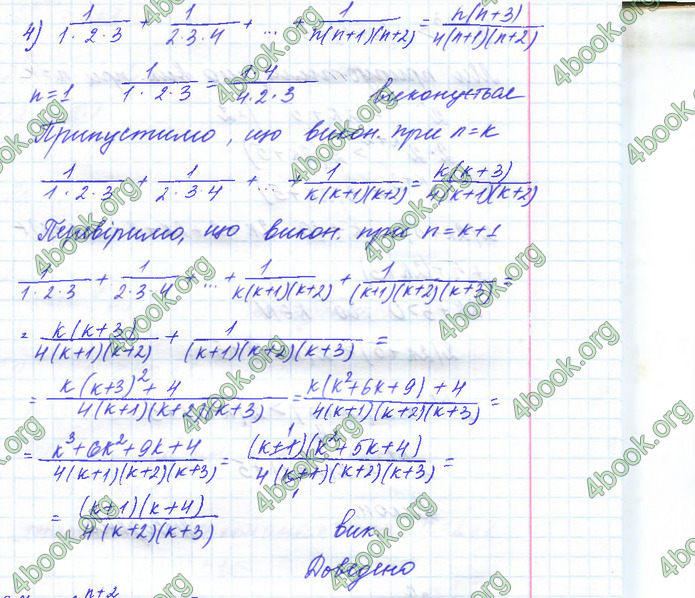 4) 1/(1·2·3) + 1/(2·3·4) + ... + 1/(n(n+1)(n+2)) = n(n+3)/(4(n+1)(n+2))
n=1 1/(1·2·3) = (1·4)/(4·2·3) виконується
Припустимо, що викон. при n=k
1/(1·2·3) + 1/(2·3·4) + ... + 1/(k(k+1)(k+2)) = k(k+3)/(4(k+1)(k+2))
Перевіримо, що викон. при n=k+1
1/(1·2·3) + 1/(2·3·4) + ... + 1/(k(k+1)(k+2)) + 1/((k+1)(k+2)(k+3)) =
= k(k+3)/(4(k+1)(k+2)) + 1/((k+1)(k+2)(k+3)) =
= (k(k+3)²+4)/(4(k+1)(k+2)(k+3)) = (k(k²+6k+9)+4)/(4(k+1)(k+2)(k+3)) =
= (k³+6k²+9k+4)/(4(k+1)(k+2)(k+3)) = (k+1)(k²+5k+4)/(4(k+1)(k+2)(k+3)) =
= (k+1)(k+4)/(4(k+2)(k+3)) вик.
Доведено
n+2
4book.org